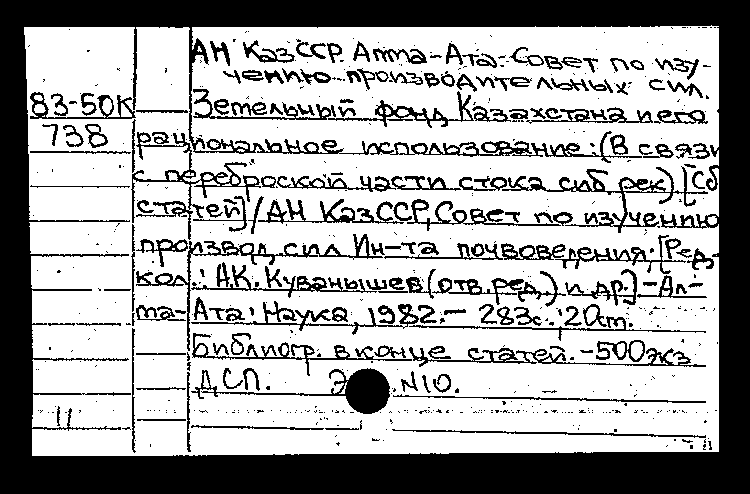 АН КазССР. Алма-Ата. Совет по изу-
чению производительных сил.
83-50К Земельный фонд Казахстана и его
738 рациональное использование: (В связи
с переброской части стока сиб. рек). [Сб.
статей] / АН КазССР, Совет по изучению
производ. сил Ин-та почвоведения; [Ред.
кол.: А.К. Куванышев (отв. ред.) и др.] - Ал-
ма-Ата: Наука, 1982. - 283с.; 20см.
Библиогр. в конце статей. - 500экз
ДСП. N10.
11